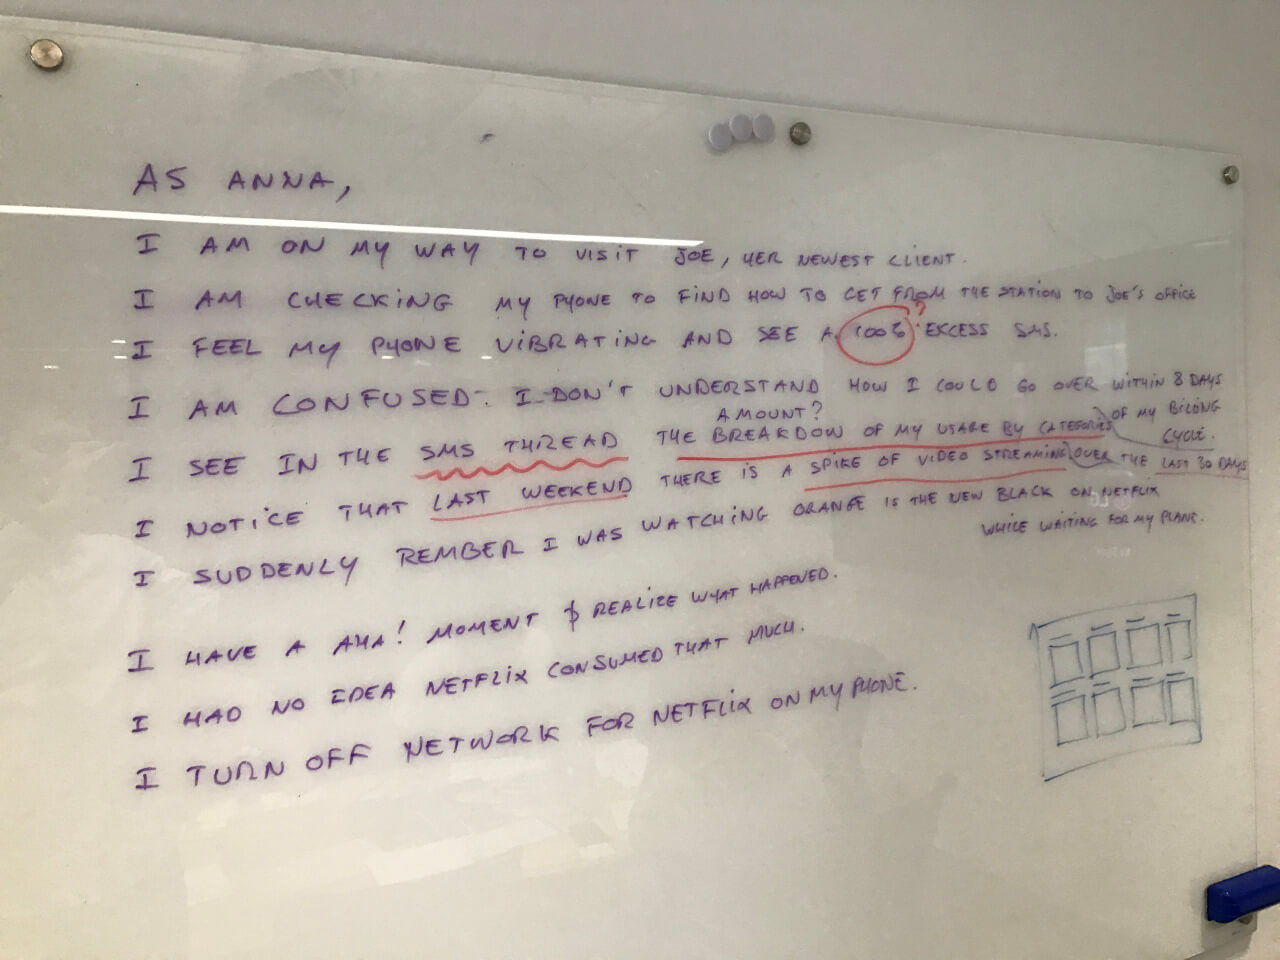 AS ANNA,
I AM ON MY WAY TO VISIT JOE, HER NEWEST CLIENT.
I AM CHECKING MY PHONE TO FIND HOW TO GET FROM THE STATION TO JOE'S OFFICE
?
I FEEL MY PHONE VIBRATING AND SEE A 100% EXCESS SMS.
I AM CONFUSED. I DON'T UNDERSTAND HOW I COULD GO OVER WITHIN 8 DAYS
AMOUNT? OF MY BILLING
CYCLE.
I SEE IN THE SMS THREAD THE BREAKDOW OF MY USAGE BY CATEGORIES
I NOTICE THAT LAST WEEKEND THERE IS A SPIKE OF VIDEO STREAMING OVER THE LAST 30 DAYS
I SUDDENLY REMBER I WAS WATCHING ORANGE IS THE NEW BLACK ON NETFLIX
WHILE WAITING FOR MY PLANE.
I HAVE A AHA! MOMENT & REALIZE WHAT HAPPENED.
I HAD NO IDEA NETFLIX CONSUMED THAT MUCH.
I TURN OFF NETWORK FOR NETFLIX ON MY PHONE.